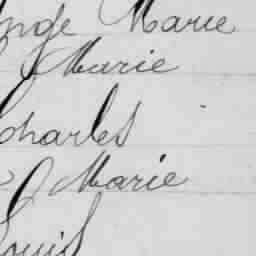 Ange Marie
Marie
Charles
Marie
Louis